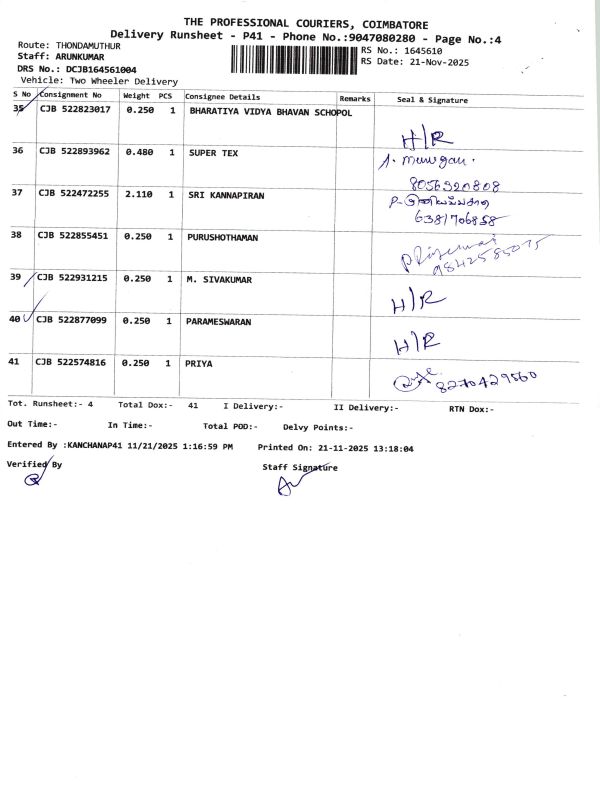 THE PROFESSIONAL COURIERS, COIMBATORE
Delivery Runsheet - P41 - Phone No.:9047080280 - Page No.:4
Route: THONDAMUTHUR
Staff: ARUNKUMAR
DRS No.: DCJB164561004
Vehicle: Two Wheeler Delivery
RS No.: 1645610
RS Date: 21-Nov-2025
S No Consignment No Weight PCS Consignee Details Remarks Seal & Signature
35 CJB 522823017 0.250 1 BHARATIYA VIDYA BHAVAN SCHOPOL H/R
36 CJB 522893962 0.480 1 SUPER TEX A. Murugan.
8056320808
37 CJB 522472255 2.110 1 SRI KANNAPIRAN
6381706858
38 CJB 522855451 0.250 1 PURUSHOTHAMAN
9842585075
39 CJB 522931215 0.250 1 M. SIVAKUMAR H/R
40 CJB 522877099 0.250 1 PARAMESWARAN H/R
41 CJB 522574816 0.250 1 PRIYA 8270429560
Tot. Runsheet:- 4 Total Dox:- 41 I Delivery:- II Delivery:- RTN Dox:-
Out Time:- In Time:- Total POD:- Delvy Points:-
Entered By :KANCHANAP41 11/21/2025 1:16:59 PM Printed On: 21-11-2025 13:18:04
Verified By Staff Signature